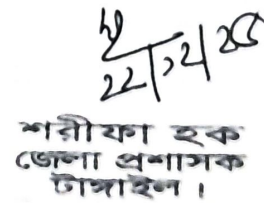 ২২/১২/২৫
শরীফা হক
জেলা প্রশাসক
টাঙ্গাইল।